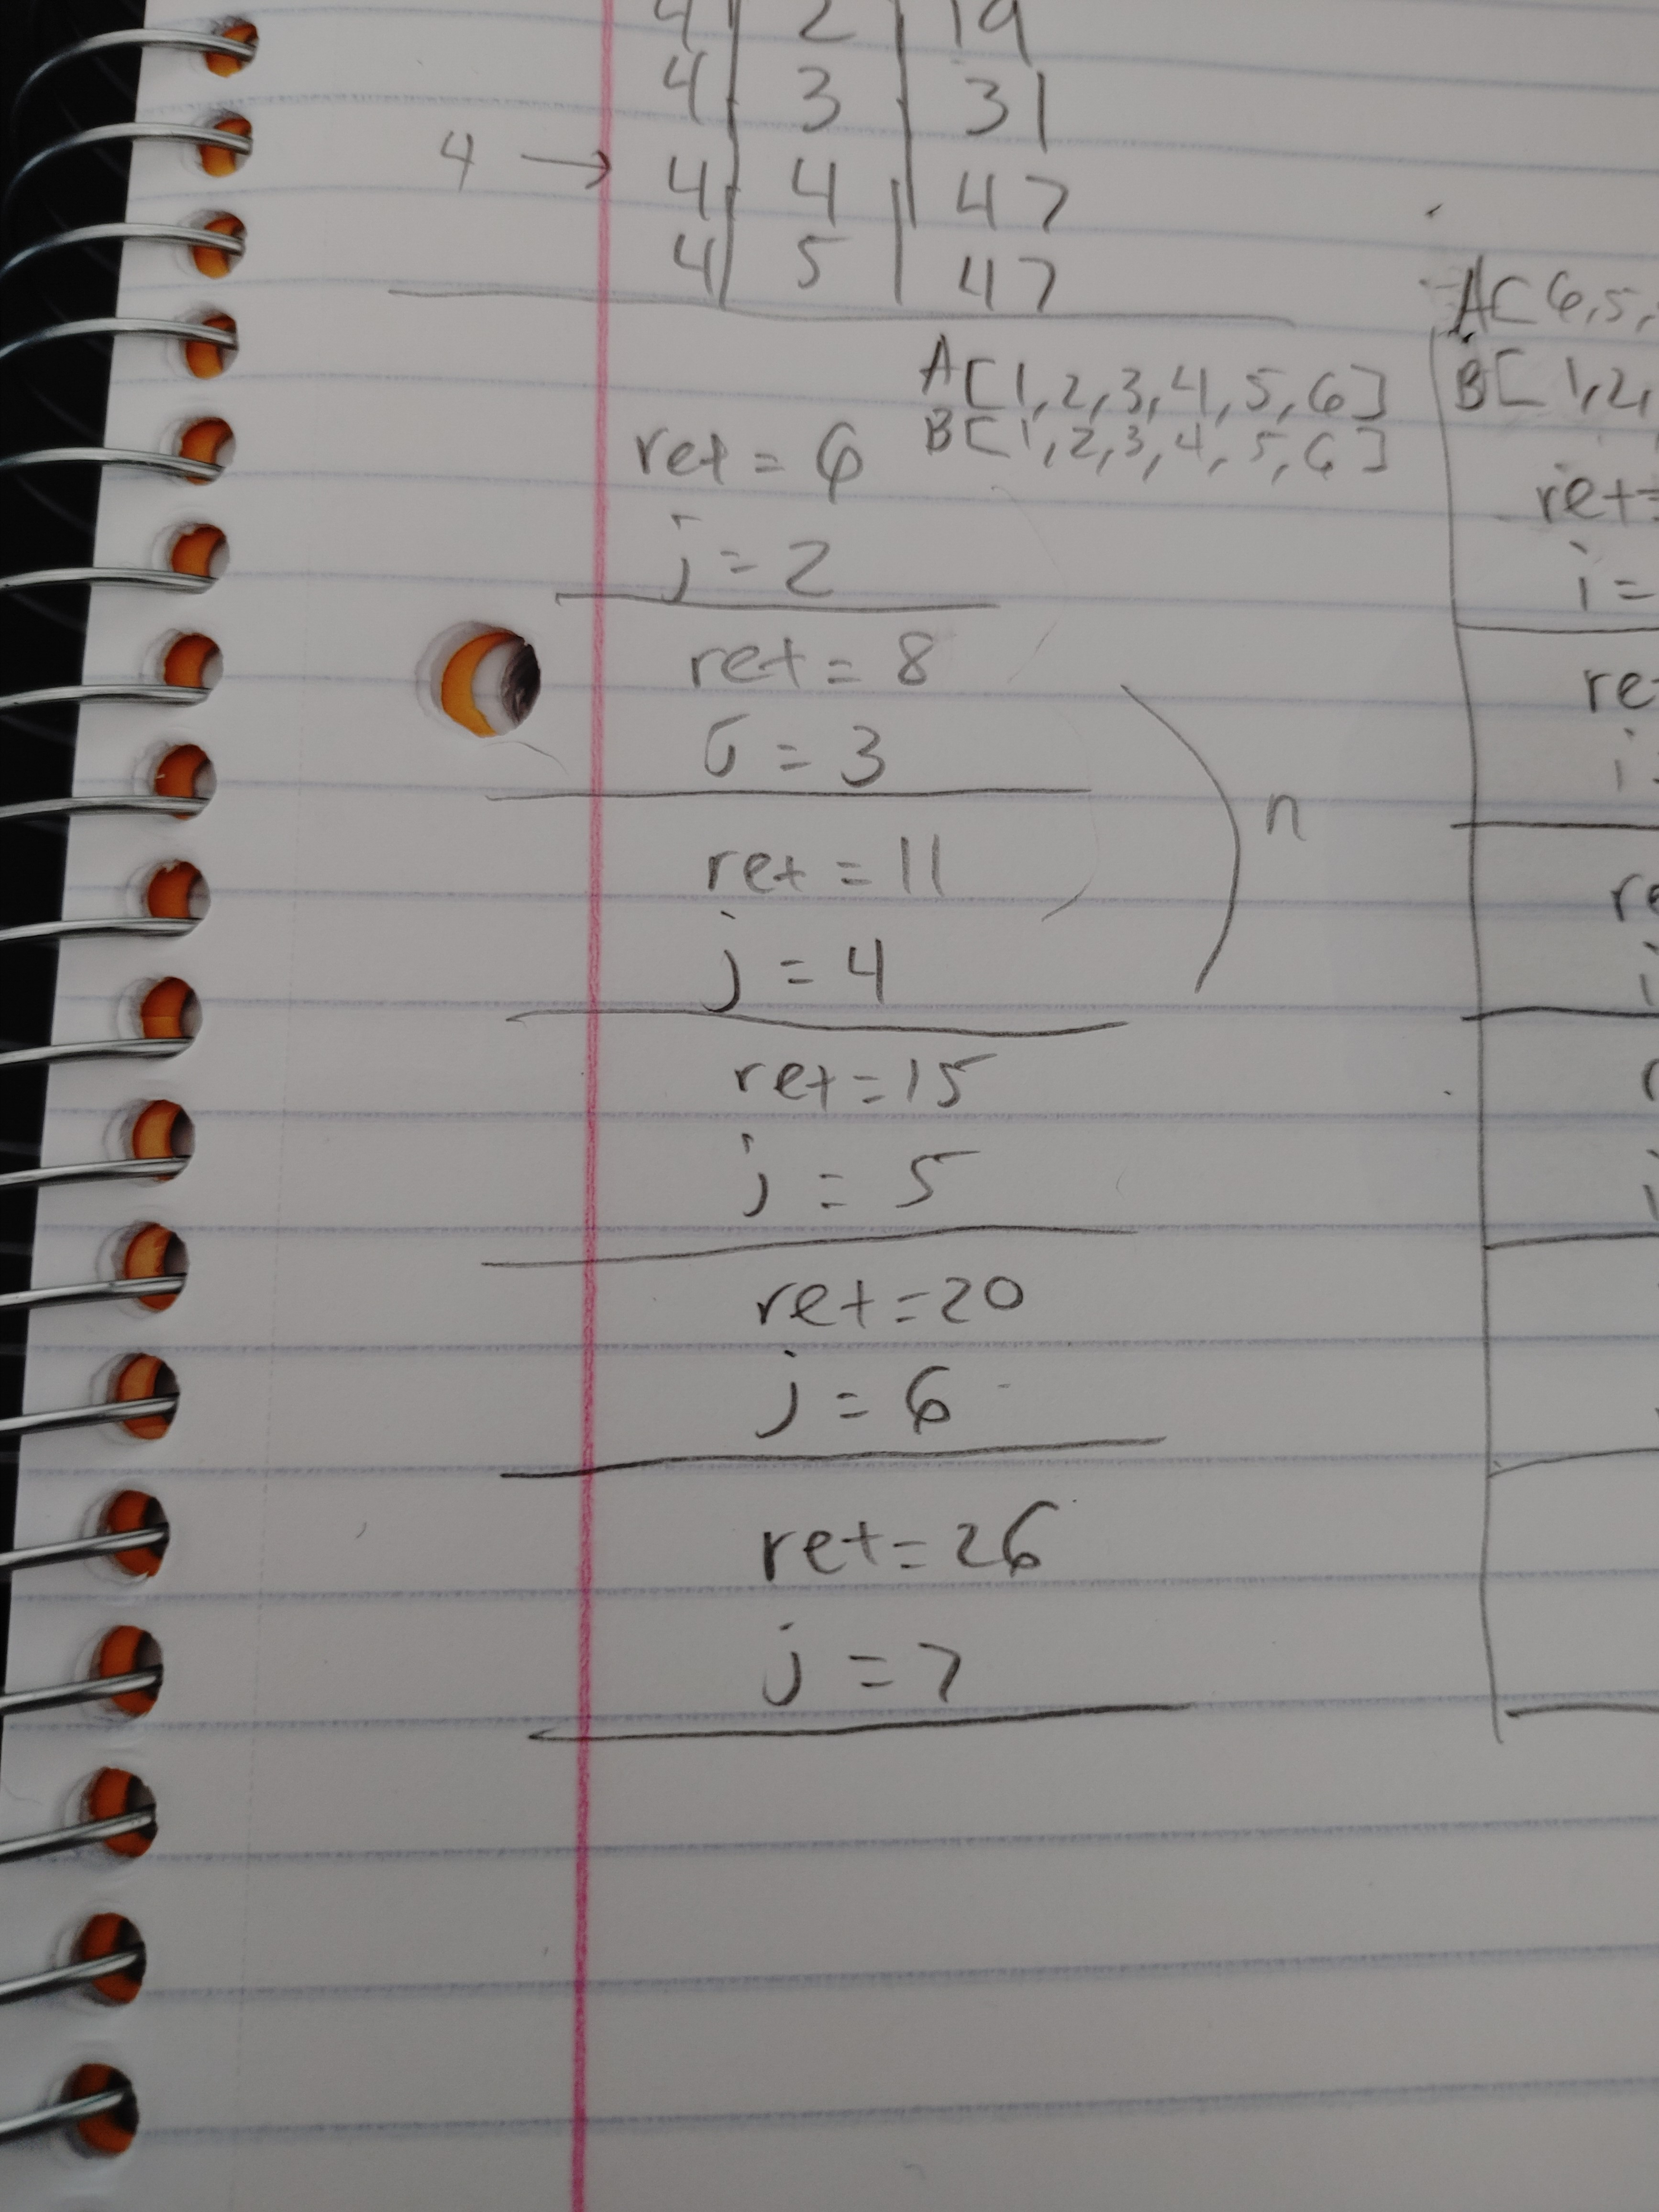 4 2 19
4 3 31
4 → 4 4 47
4 5 47
A[1,2,3,4,5,6]
B[1,2,3,4,5,6]
ret = 6
j = 2
ret = 8
j = 3
n
ret = 11
j = 4
ret = 15
j = 5
ret = 20
j = 6
ret = 26
j = 7
A[6,5,
B[1,2,
ret=
i =
re
i
re
i
r
i